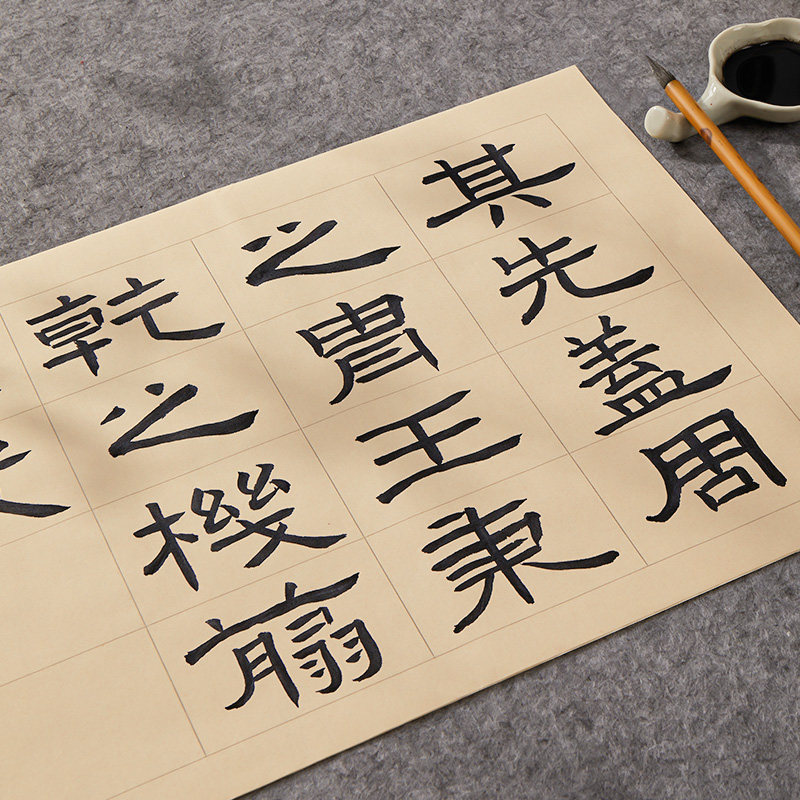 其先蓋周
之胄王秉
乾之機翦